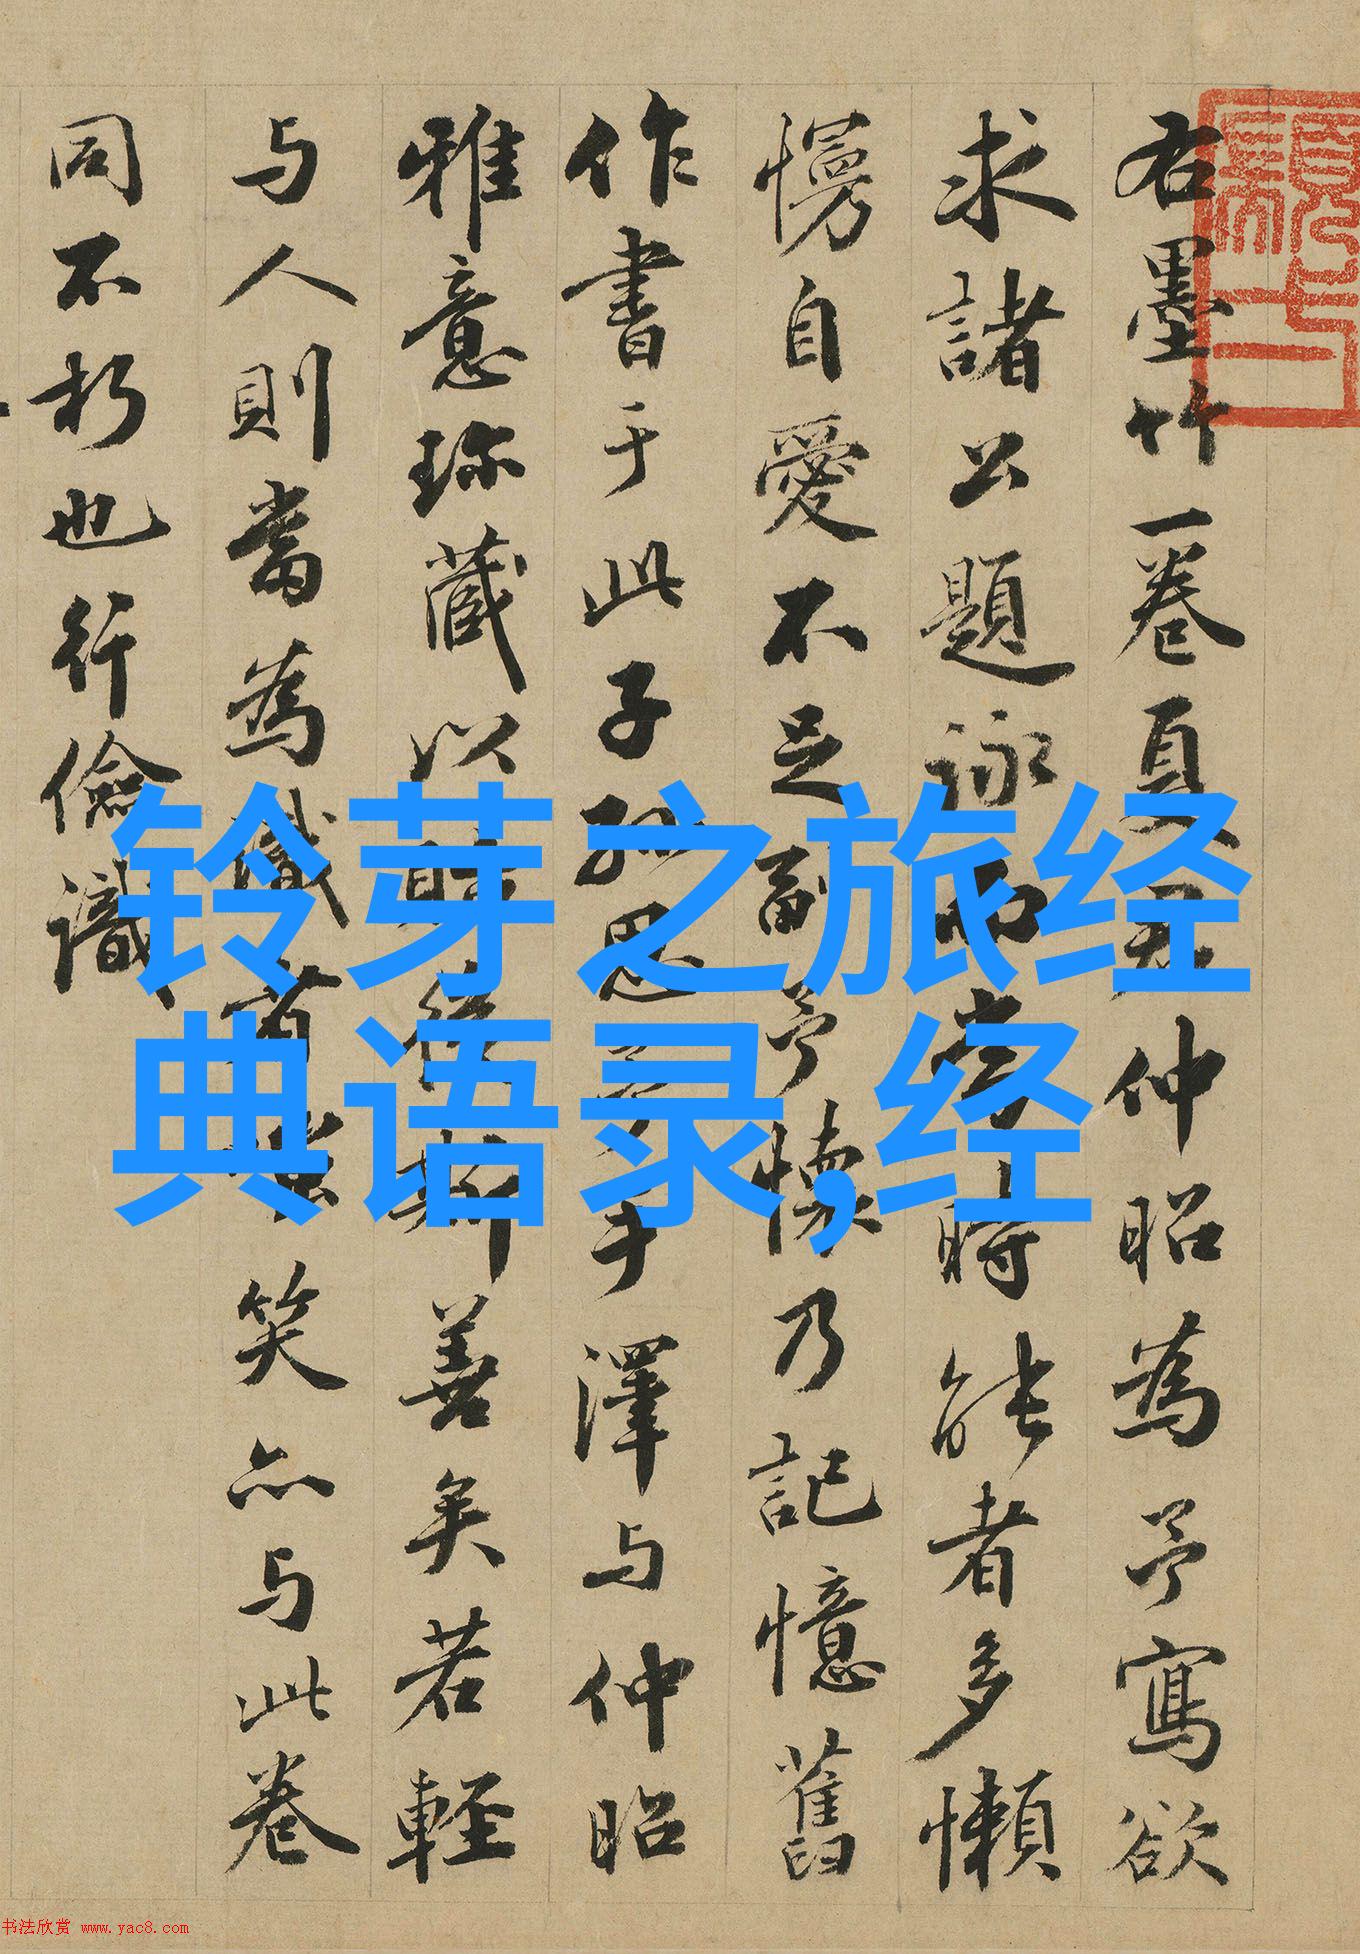 右墨竹一卷夏仲昭為予寫欲
求諸公題詠而時能者多懶
慢自愛不足副予懷乃記憶舊
作書于此子孫思手澤与仲昭
雅意珎藏以斯善矣若輕
与人則當為笑亦与此卷
同不朽也行儉識
铃芽之旅经
典语录,经
书法欣赏 www.yac8.com